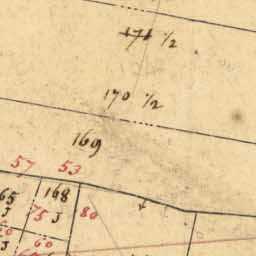 171 1/2
170 1/2
169
57 53
65 168
J 75 J 80
60
J 60